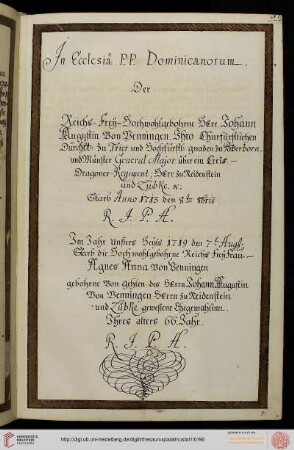 In Ecclesiâ P.P. Dominicanorum.
Der
Reichs-Frey-Hochwohlgebohrne Herr Johann
Augustin Von Venningen Ihro Churfürstlichen
Durchlt. zu Trier und Hochfürstl. gnaden zu Paderborn
und Münster General Major über ein Creis-
Dragoner-Regiment, Herr zu Reidenstein
und Zübke. &.
Starb Anno 1713 den 8te 8bris
R. I. P. A.
Im Jahr Unsers Heyls 1719 den 7t. Aug.
Starb die Hochwohlgebohrne Reichs Frey Frau
Agnes Anna Von Venningen
gebohrne Von Gehlen des Herrn Johann Augustin
Von Venningen Herrn zu Reidenstein
und Zübke gewesene Ehegemahlinn
Ihres alters 66. Jahr.
R. I. P. A.
http://digi.ub.uni-heidelberg.de/diglit/thesauruspalatinusbd1/0190